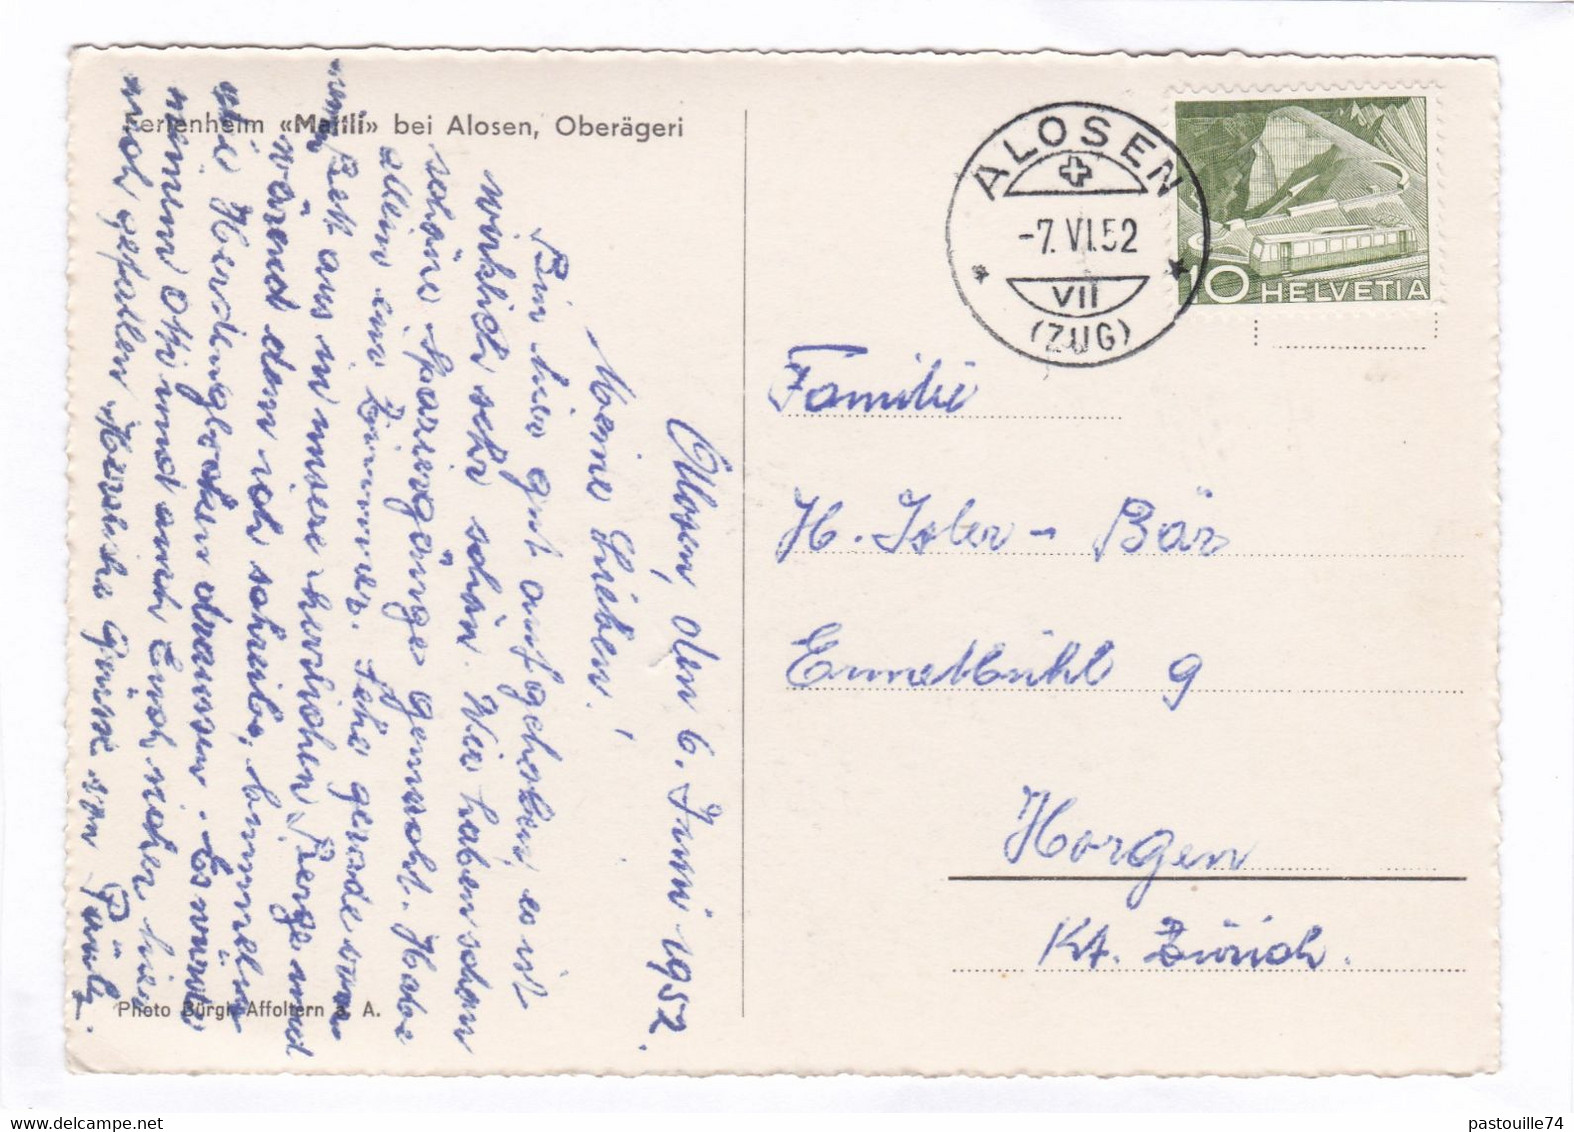 Ferienheim «Mattli» bei Alosen, Oberägeri
Alosen, den 6. Juni 1952.
Meine Lieben!
Bin hier gut aufgehoben, es ist
wirklich sehr schön. Wir haben schon
schöne Spaziergänge gemacht. Habe
allein ein Zimmer. Sehe gerade vom
Bett aus in unsere herrlichen Berge und
wärend dem ich schreibe, bimmeln
die Herdenglocken draussen. Es würde
meinem Otti und auch Emch sicher hier
auch gefallen. Herzliche Grüsse von
Photo Bürgi Affoltern a. A.
ALOSEN
-7.VI.52
VII
(ZUG)
10 HELVETIA
Familie
H. Isler - Bär
Ennetbühl 9
Horgen
Kt. Zürich.
pastouille74